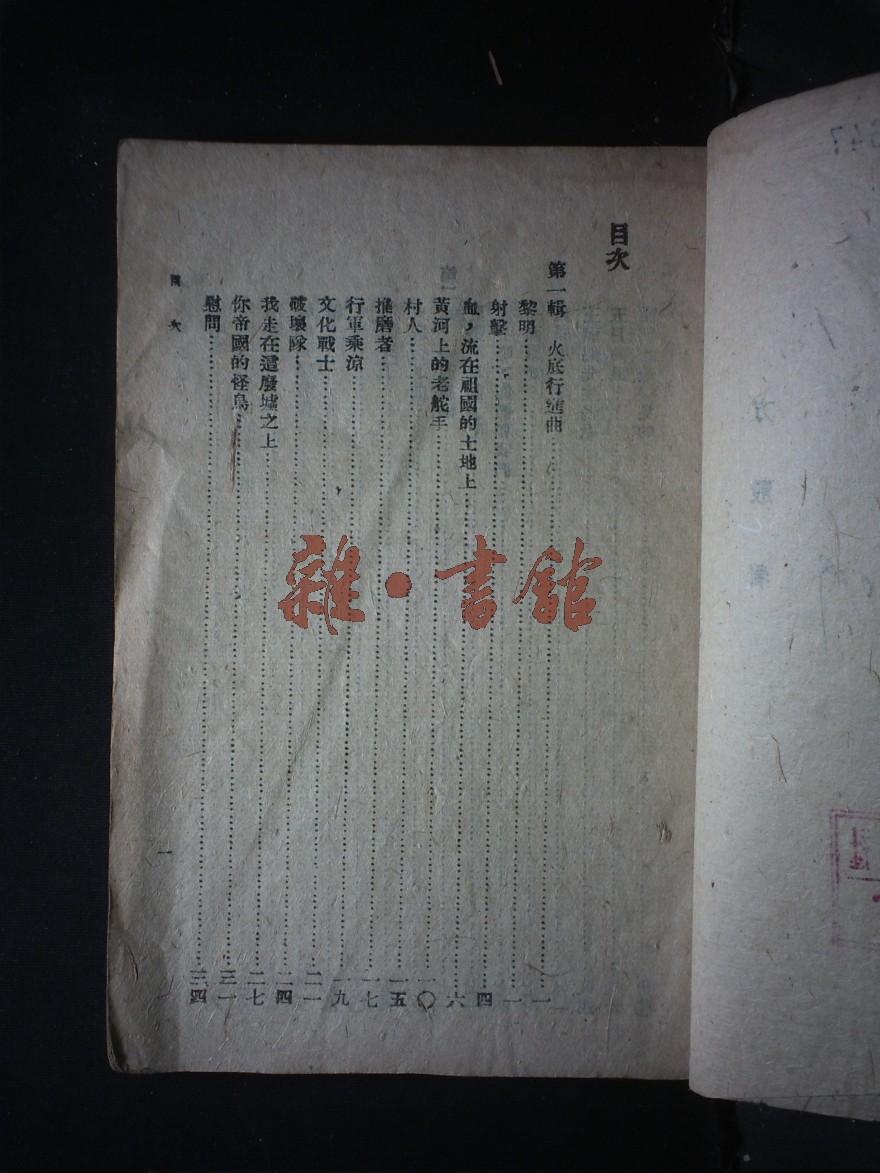 目次
第一輯 火底行進曲…………一
黎明…………一
射擊…………四
血，流在祖國的土地上…………六
黃河上的老舵手…………一〇
村人…………一五
推磨者…………一七
行軍乘涼…………一九
文化戰士…………二一
破壞隊…………二四
我走在這廢墟之上…………二七
你帝國的怪鳥…………三一
慰問…………三四
目次
一
雜·書館